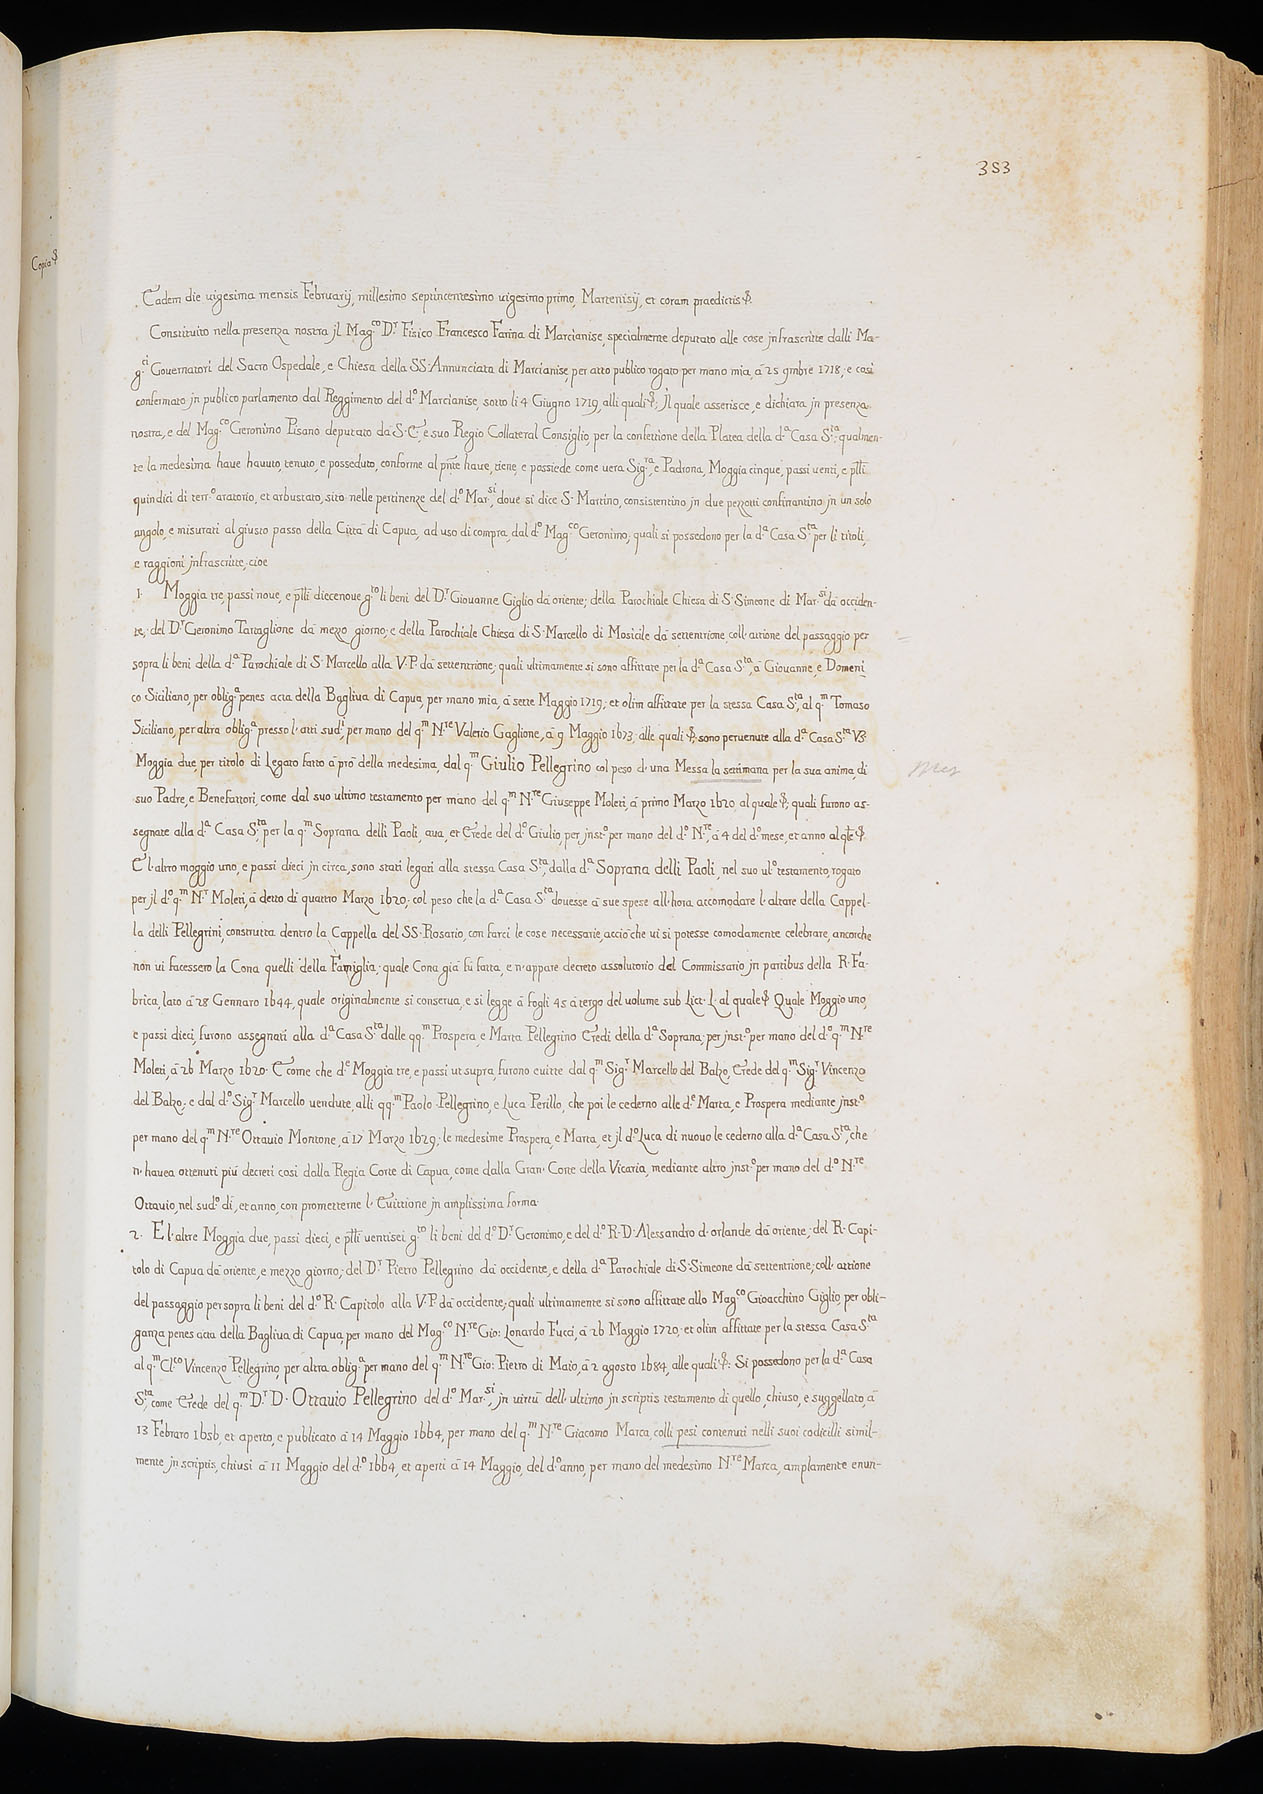 353
Copia &
Eadem die uigesima mensis Februarij, millesimo septincentesimo uigesimo primo, Martenisij, et coram praedictis &.
Constituito nella presenza nostra jl Mag.co D.r Fisico Francesco Farina di Marcianise, specialmente deputato alle cose jnfrascritte dalli Ma-
g.ci Gouernatori del Sacro Ospedale, e Chiesa della SS. Annunciata di Marcianise, per atto publico rogato per mano mia, à 25 9mbre 1718; e così
confermato jn publico parlamento dal Reggimento del d.o Marcianise, sotto li 4 Giugno 1719, alli quali &; Jl quale asserisce, e dichiara jn presenza
nostra, e del Mag.co Geronimo Pisano deputato da S. E., e suo Regio Collateral Consiglio, per la confettione della Platea della d.a Casa S.ta; qualmen-
te la medesima haue hauuto, tenuto, e posseduto, conforme al pnte haue, tiene, e possiede come uera Sig.ra, e Padrona, Moggia cinque, passi uenti, e ptti
quindici di terr.o aratorio, et arbustato, sito nelle pertinenze del d.o Mar.si, doue si dice S. Martino, consistentino jn due pezzotti confirrantino jn un solo
angolo, e misurati al giusto passo della Città di Capua, ad uso di compra, dal d.o Mag.co Geronimo; quali si possedono per la d.a Casa S.ta per li titoli,
e raggioni jnfrascritte, cioe
1. Moggia tre, passi noue, e ptti diecenoue g.to li beni del D.r Giouanne Giglio dà oriente; della Parochiale Chiesa di S. Simeone di Mar.si dà occiden-
te; del D.r Geronimo Tartaglione dà mezzo giorno; e della Parochiale Chiesa di S. Marcello di Mosicile dà settentrione, coll'attione del passaggio per
sopra li beni della d.a Parochiale di S. Marcello alla V. P. dà settentrione; quali ultimamente si sono affittate per la d.a Casa S.ta, à Giouanne, e Domeni
co Siciliano, per oblig.a penes acta della Bagliua di Capua, per mano mia, à sette Maggio 1719; et olim affittate per la stessa Casa S.ta, al q.m Tomaso
Siciliano, per altra oblig.a presso l'atti sud.i, per mano del q.m N.re Valerio Gaglione, à 9 Maggio 1673, alle quali &; sono peruenute alla d.a Casa S.ta V3:
Moggia due, per titolo di Legato fatto à prò della medesima, dal q.m Giulio Pellegrino col peso d'una Messa la settimana per la sua anima, di
suo Padre, e Benefattori, come dal suo ultimo testamento per mano del q.m N.re Giuseppe Moleti, à primo Marzo 1620, al quale &; quali furono as-
segnate alla d.a Casa S.ta, per la q.m Soprana delli Paoli, aua, et Erede del d.o Giulio, per jnst.o per mano del d.o N.re, à 4 del d.o mese, et anno al qle &.
E l'altro moggio uno, e passi dieci jn circa, sono stati legati alla stessa Casa S.ta, dalla d.a Soprana delli Paoli, nel suo ul.o testamento, rogato
per jl d.o q.m N.r Moleti, à detto dì quattro Marzo 1620; col peso che la d.a Casa S.ta douesse à sue spese all'hora accomodare l'altare della Cappel-
la delli Pellegrini, construtta dentro la Cappella del SS. Rosario, con farci le cose necessarie, acciò che ui si potesse comodamente celebrare, ancorche
non ui facessero la Cona quelli della Famiglia; quale Cona già fù fatta, e n'appare decreto assolutorio del Commissario jn partibus della R. Fa-
brica, lato à 28 Gennaro 1644, quale originalmente si conserua, e si legge à fogli 45 à tergo del uolume sub Lict. L. al quale &. Quale Moggio uno,
e passi dieci, furono assegnati alla d.a Casa S.ta dalle qq.m Prospera, e Marta Pellegrino Eredi della d.a Soprana; per jnst.o per mano del d.o q.m N.re
Moleti, à 26 Marzo 1620. E come che d.e Moggia tre, e passi ut supra, furono euitte dal q.m Sig.r Marcello del Balzo, Erede del q.m Sig.r Vincenzo
del Balzo; e dal d.o Sig.r Marcello uendute, alli qq.m Paolo Pellegrino, e Luca Perillo, che poi le cederno alle d.e Marta, e Prospera mediante jnst.o
per mano del q.m N.re Ottauio Montone, à 17 Marzo 1629; le medesime Prospera, e Marta, et jl d.o Luca di nuouo le cederno alla d.a Casa S.ta, che
n'hauea ottenuti più decreti così dalla Regia Corte di Capua, come dalla Gran Corte della Vicaria, mediante altro jnst.o per mano del d.o N.re
Ottauio, nel sud.o dì, et anno, con prometterne l'Euittione jn amplissima forma.
2. E l'altre Moggia due, passi dieci, e ptti uentisei g.to li beni del d.o D.r Geronimo, e del d.o R. D. Alessandro d'orlande dà oriente; del R. Capi-
tolo di Capua dà oriente, e mezzo giorno; del D.r Pietro Pellegrino dà occidente, e della d.a Parochiale di S. Simeone dà settentrione; coll'attione
del passaggio persopra li beni del d.o R. Capitolo alla V. P. dà occidente; quali ultimamente si sono affittate allo Mag.co Gioacchino Giglio, per obli-
ganza penes acta della Bagliua di Capua, per mano del Mag.co N.re Gio: Lonardo Fucci, à 26 Maggio 1720; et olim affittate per la stessa Casa S.ta
al q.m Cl.co Vincenzo Pellegrino, per altra oblig.a per mano del q.m N.re Gio: Pietro di Maio, à 2 agosto 1684, alle quali &: Si possedono per la d.a Casa
S.ta, come Erede del q.m D.r D. Ottauio Pellegrino del d.o Mar.si, jn uirtù dell'ultimo jn scriptis testamento di quello, chiuso, e suggellato, à
13 Febraro 1656, et aperto, e publicato à 14 Maggio 1664, per mano del q.m N.re Giacomo Marca, colli pesi contenuti nelli suoi codicilli simil-
mente jn scriptis, chiusi à 11 Maggio del d.o 1664, et aperti à 14 Maggio, del d.o anno, per mano del medesimo N.re Marca, amplamente enun-